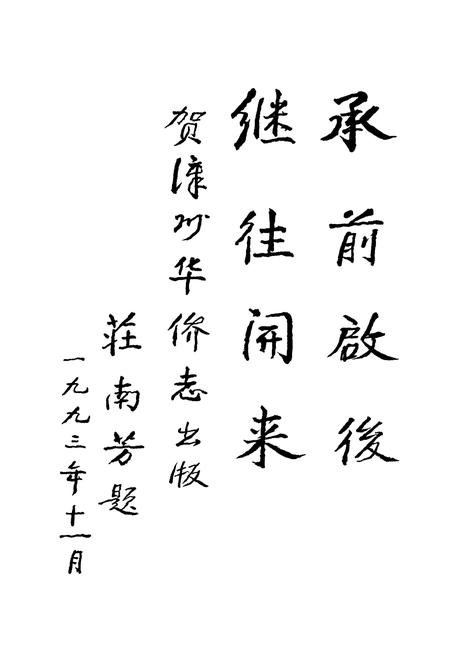 承前啟後
继往开来
贺漳州华侨志出版
莊南芳题
一九九三年十一月